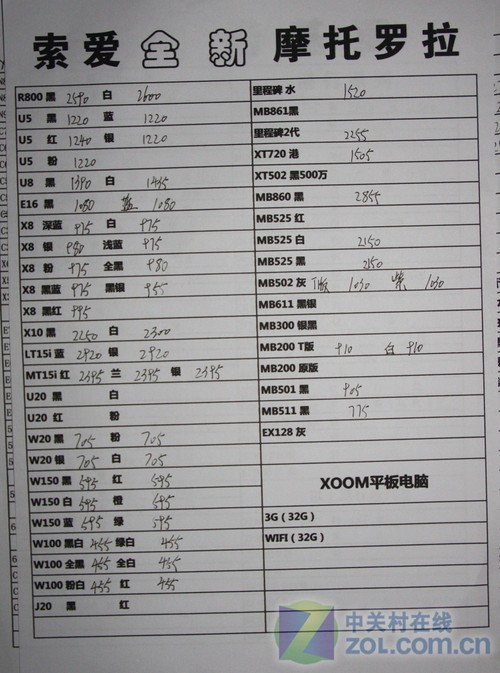 索爱全新摩托罗拉
R800 黑 2590 白 2600
U5 黑 1220 蓝 1220
U5 红 1240 银 1220
U5 粉 1220
U8 黑 1390 白
E16 黑 1080 蓝 1080
X8 深蓝 975 白 975
X8 银 980 浅蓝 975
X8 粉 975 全黑 980
X8 黑蓝 975 黑银 955
X8 黑红 995
X10 黑 2250 白 2300
LT15i 蓝 2920 银 2920
MT15i 红 2395 兰 2395 银 2395
U20 黑 白
U20 红 粉
W20 黑 705 粉 705
W20 银 705 白 705
W150 黑 595 红 595
W150 白 595 橙 595
W150 蓝 595 绿 595
W100 黑白 455 绿白 455
W100 全黑 455 全白 455
W100 粉白 455 红 455
J20 黑 红
里程碑 水 1520
MB861黑
里程碑2代 2255
XT720 港 1505
XT502 黑500万
MB860 黑 2855
MB525 红
MB525 白 2150
MB525 黑 2150
MB502 灰 T版 1030 紫 1030
MB611 黑银
MB300 银黑
MB200 T版 910 白 910
MB200 原版
MB501 黑 905
MB511 黑 775
EX128 灰
XOOM平板电脑
3G(32G)
WIFI(32G)
中关村在线
ZOL.com.cn